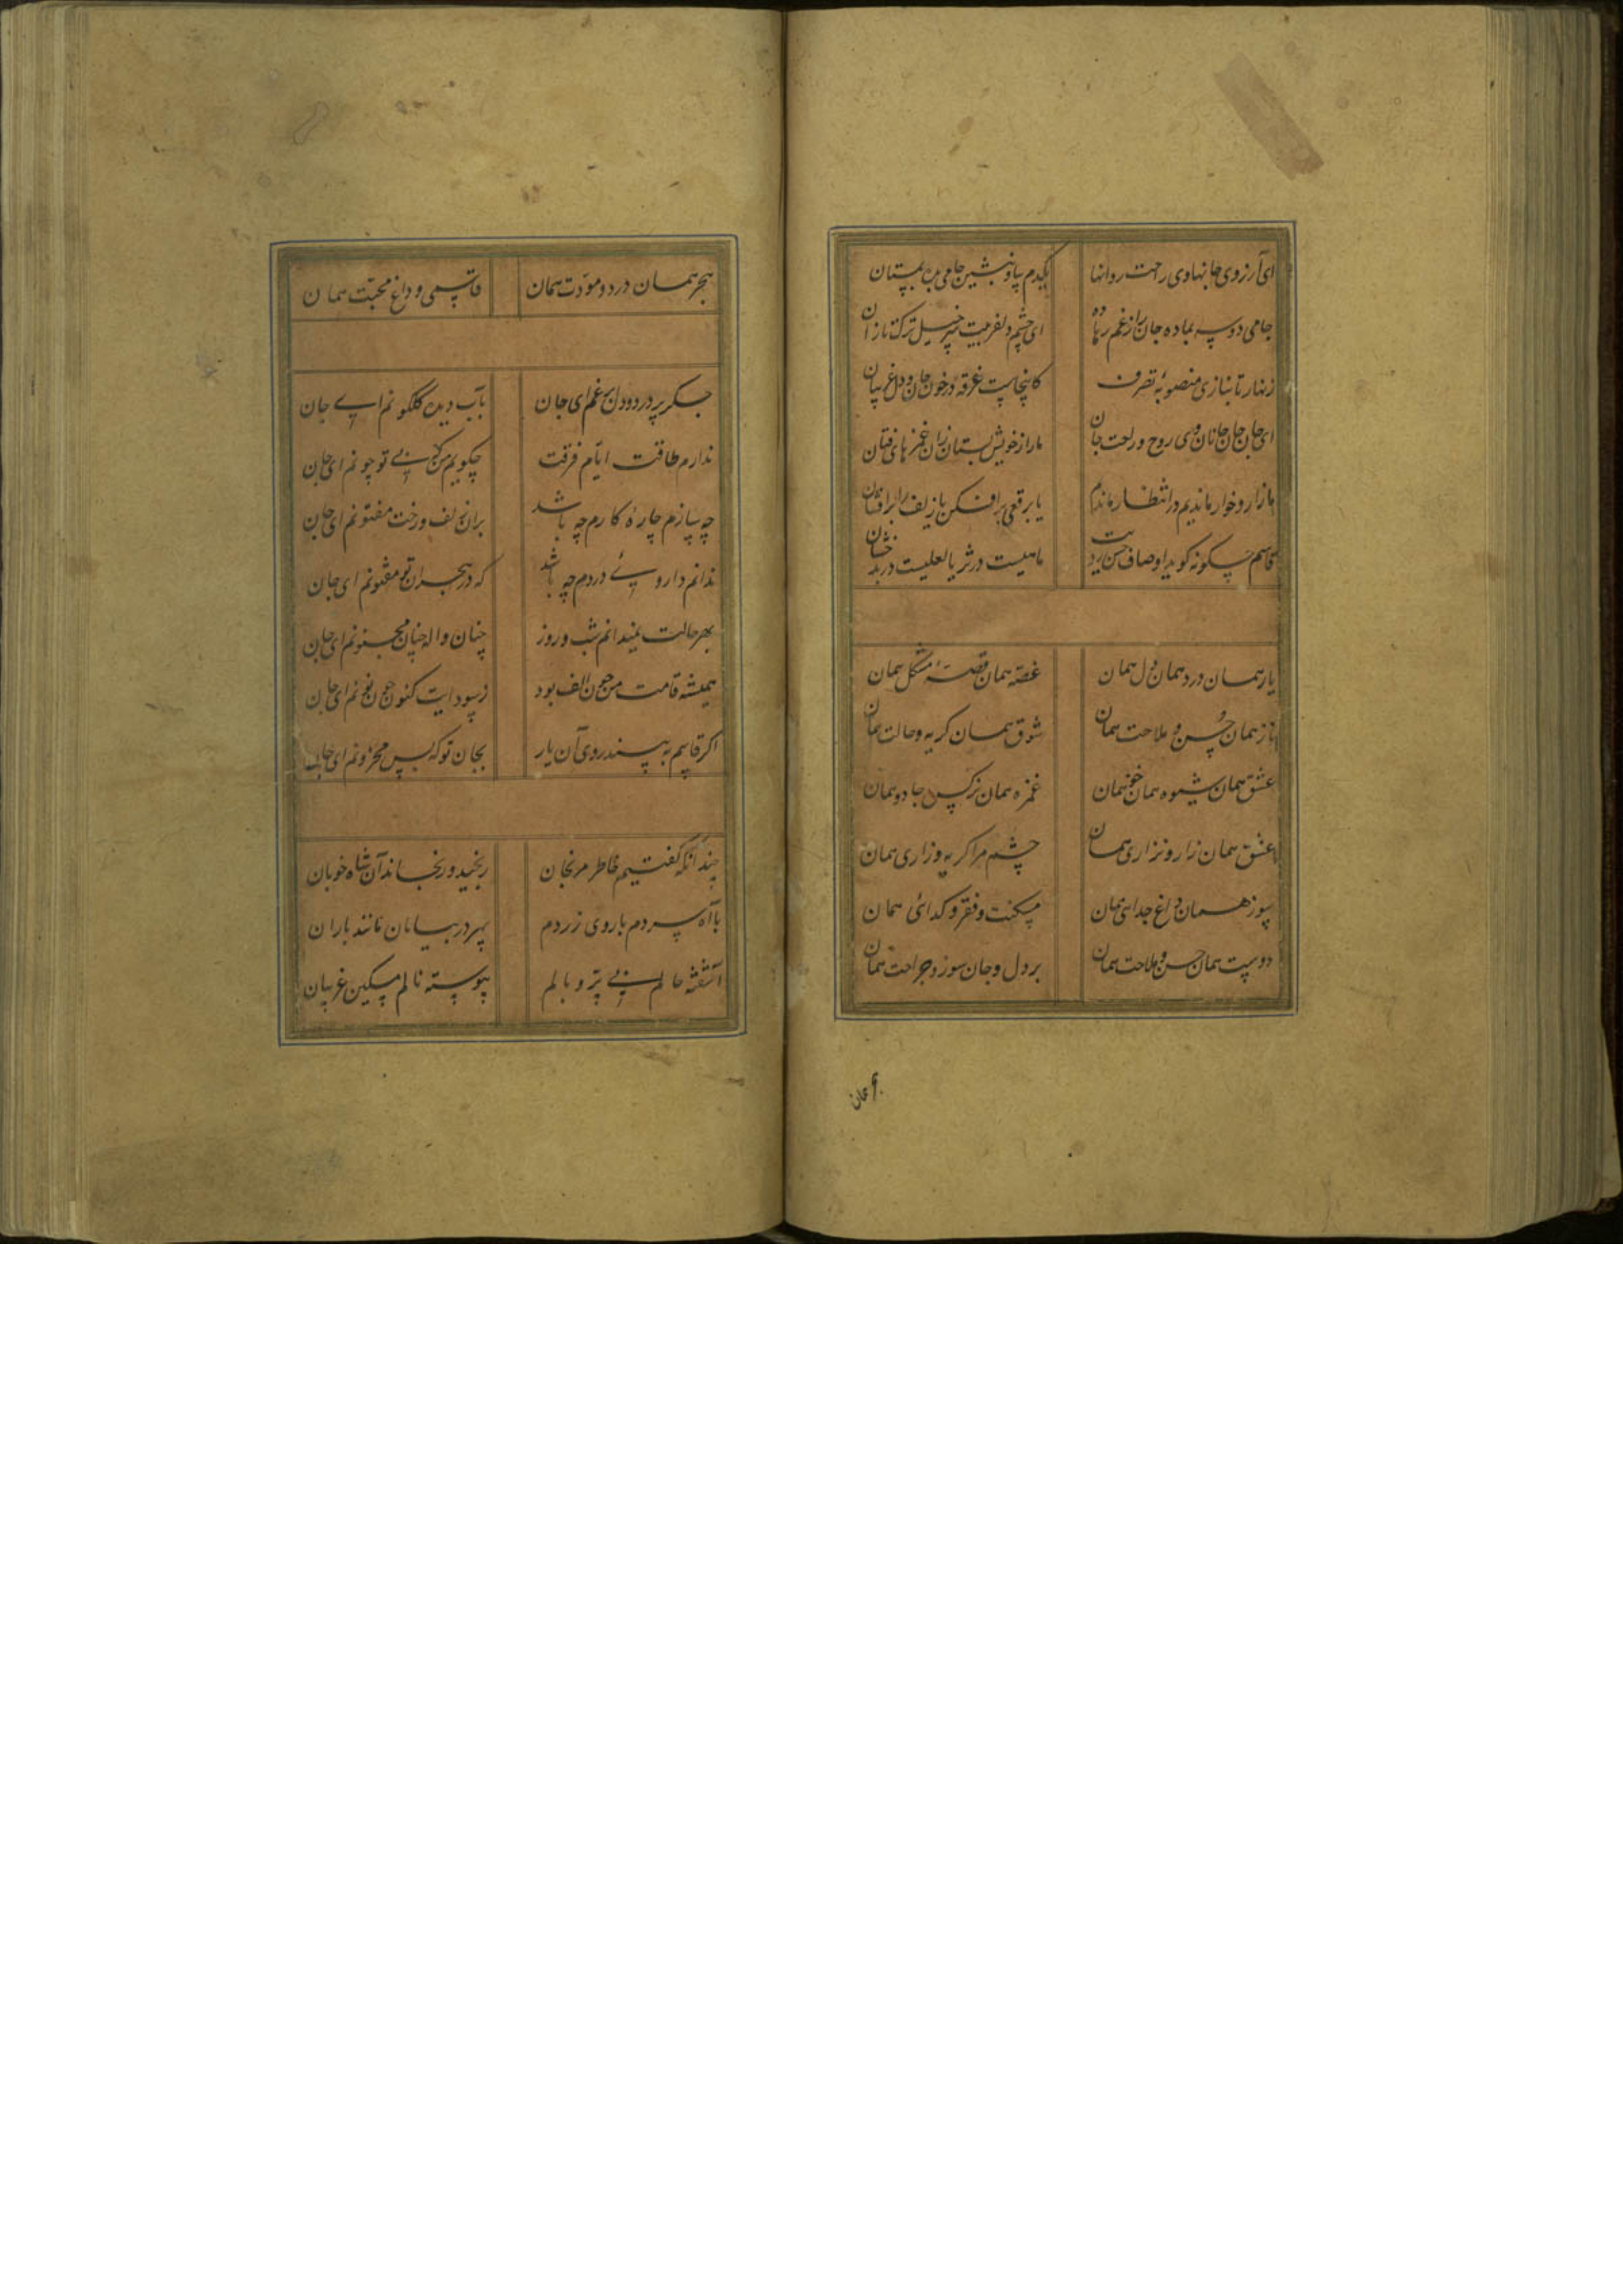 ای آرزوی جانها وی راحت روانها یکدم بیا و بنشین جامی بده بمستان
جامی دو سه بما ده جان را ز غم رها ده ای چشم دلفریبت سر خیل ترک تازان
زنهار تا نبازی منصوبه تصرف کاینجاست غرقه در خون جان و دل غریبان
ای جان جان جانان وی روح و راحت جان ما را ز خویش بستان زان غمزهای فتان
ما زار و خوار ماندیم در انتظار ماندیم یا برقعی برافکن یا زلف را برافشان
قاسم چگونه گوید اوصاف حسن رویت ماهیست در ثریا لعلیست در بدخشان
یار همان درد همان دل همان غصه همان قصهٔ مشکل همان
ناز همان حسن و ملاحت همان شوق همان گریه و حالت همان
عشق همان شیوه همان خو همان غمزه همان نرگس جادو همان
عشق همان زار و نزاری همان چشم مرا گریه و زاری همان
سوز همان داغ جدایی همان مسکنت و فقر و گدائی همان
دوست همان حسن و ملاحت همان بر دل و جان سوز و جراحت همان
هجر همان
هجر همان درد و مودت همان قاسمی و داغ محبت همان
جگر پر درد و دل پر غم ای جان بآب دیده گلگونم ای جان
ندارم طاقت ایام فرقت چگویم من که بی تو چونم ای جان
چه سازم چارهٔ کارم چه باشد بران زلف و رخت مفتونم ای جان
ندانم داروی دردم چه باشد که در هجران تو مفتونم ای جان
بهر حالت نمیدانم شب و روز چنان واله چنان مجنونم ای جان
همیشه قامت من چون الف بود ز سودایت کنون چون نونم ای جان
اگر قاسم نه بیند روی آن یار بجان تو که بس محزونم ای جان
چندانکه گفتیم خاطر مرنجان رنجید و رنجاند آن شاه خوبان
با آه سردم با روی زردم بهر در بیابان مانند باران
آشفته حالم بی پر و بالم پیوسته نالم مسکین غریبان